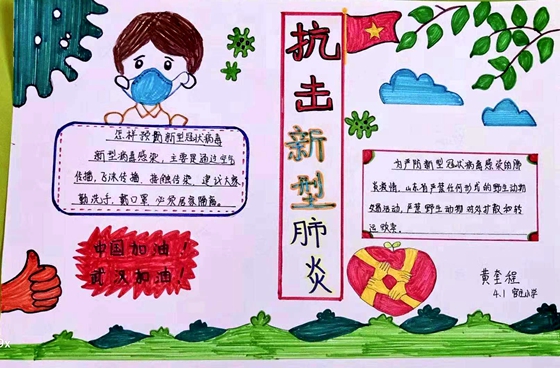 怎样预防新型冠状病毒
新型病毒感染,主要是通过空气
传播,飞沫传播,接触传染,建议大家
勤洗手,戴口罩
中国加油!
武汉加油!
抗击新型肺炎
为严防新型冠状病毒感染的肺
炎疫情,山东省严禁任何形式的野生动物
交易活动,严禁野生动物对外扩散和转
运贩卖。
黄奎程
4.1